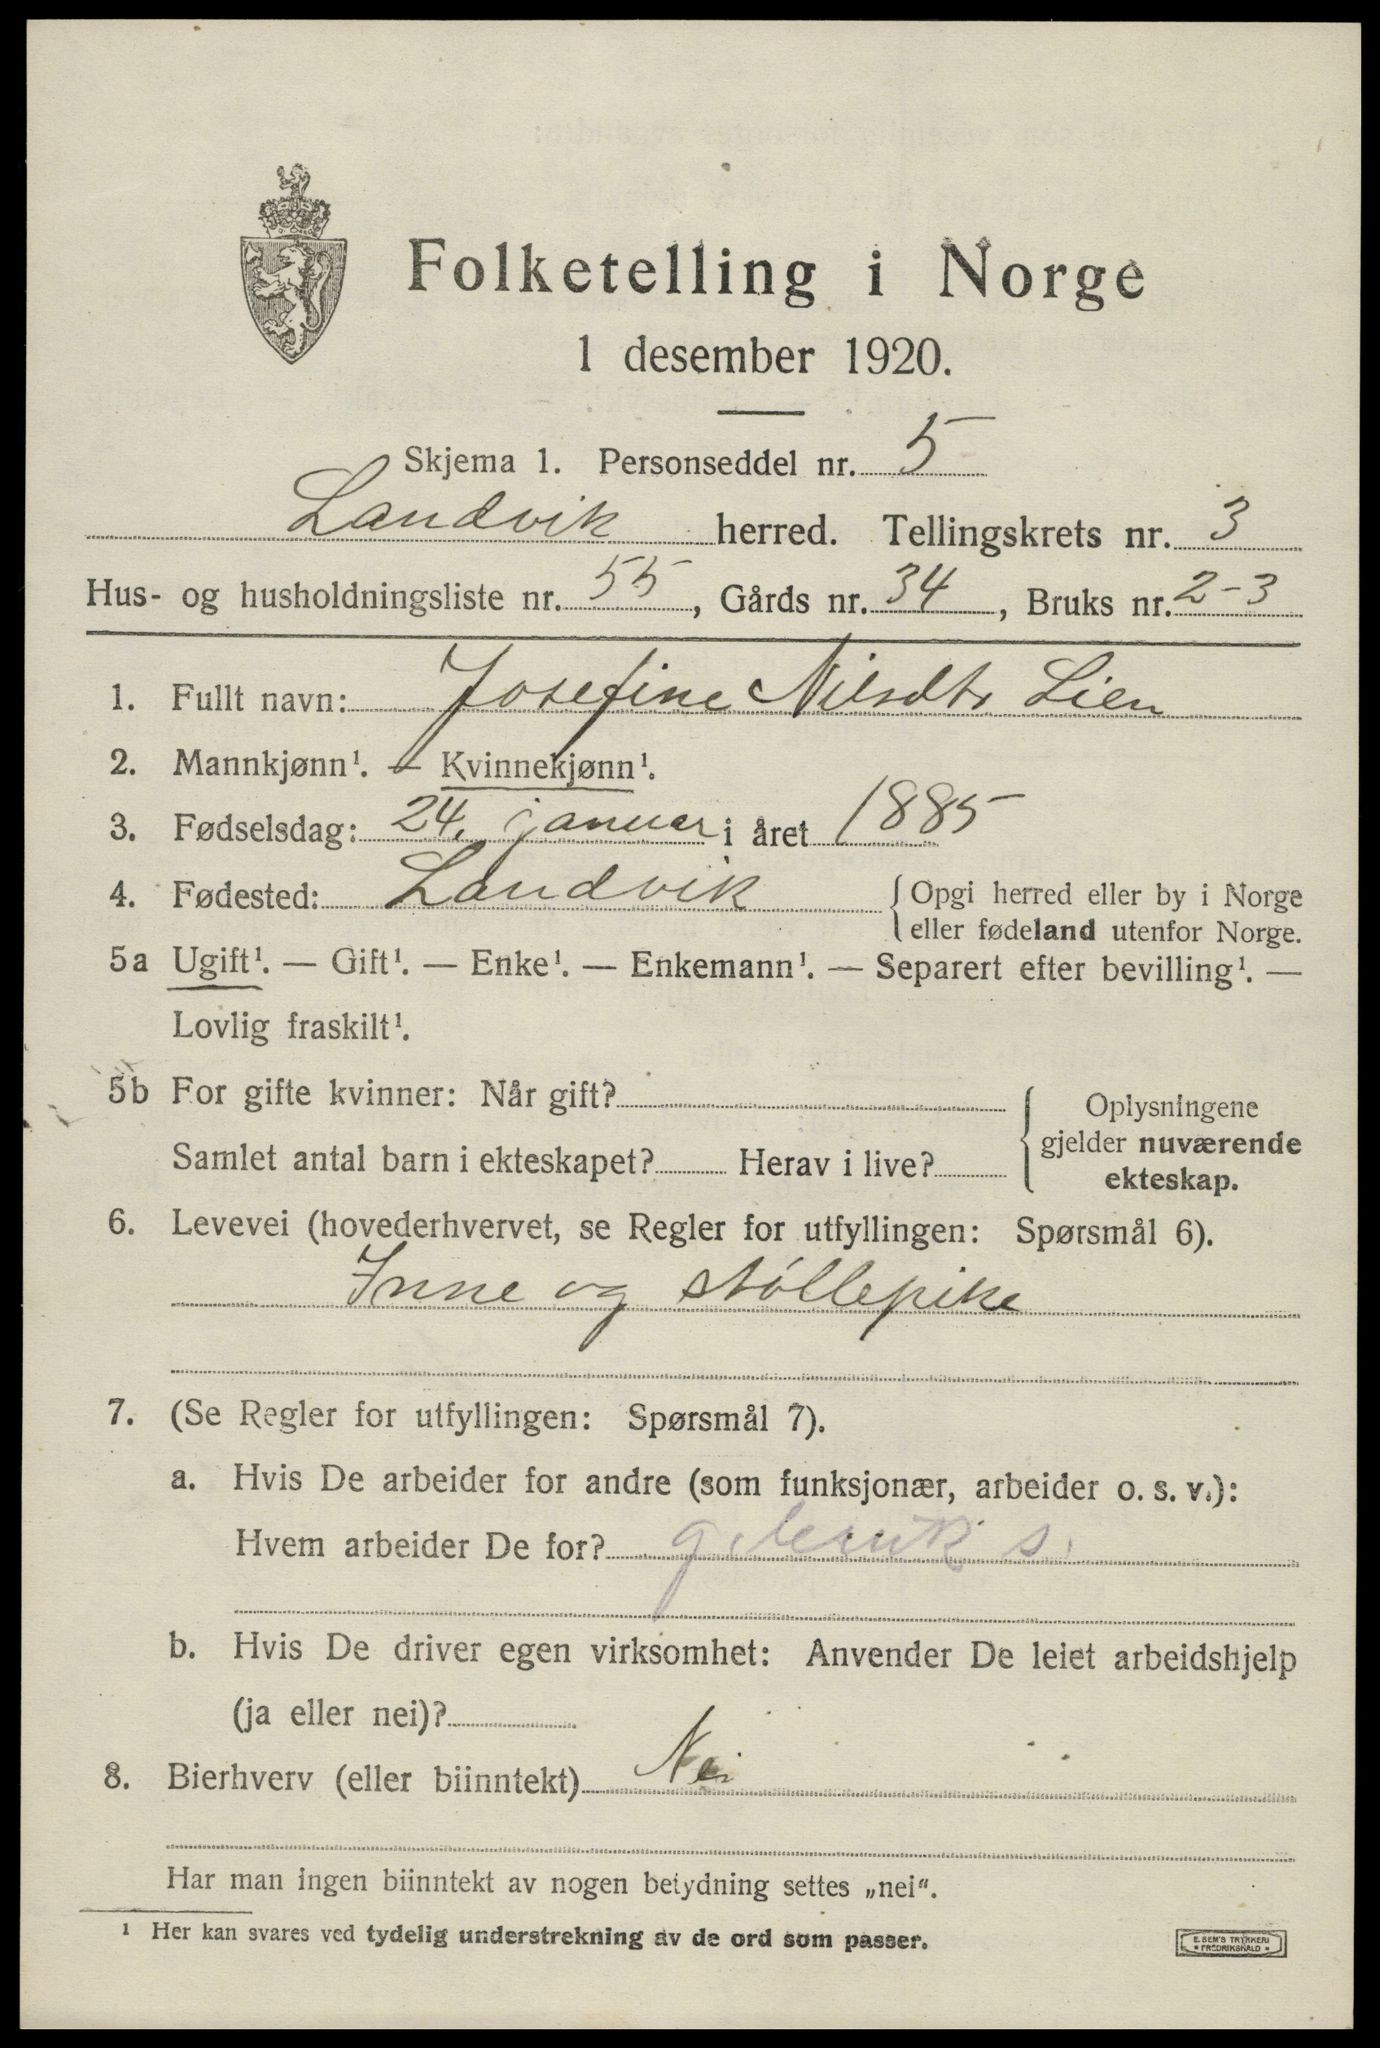 Folketelling i Norge
1 desember 1920.
Skjema 1. Personseddel nr. 5
Landvik herred. Tellingskrets nr. 3
Hus- og husholdningsliste nr. 55, Gårds nr. 34, Bruks nr. 2-3
1. Fullt navn: Josefine Nilsdtr Lien
2. Mannkjønn¹. — Kvinnekjønn¹.
3. Fødselsdag: 24. januar i året 1885
4. Fødested: Landvik { Opgi herred eller by i Norge
eller fødeland utenfor Norge.
5a Ugift¹. — Gift¹. — Enke¹. — Enkemann¹. — Separert efter bevilling¹. —
Lovlig fraskilt¹.
5b For gifte kvinner: Når gift?
Samlet antal barn i ekteskapet? Herav i live?
Oplysningene
gjelder nuværende
ekteskap.
6. Levevei (hovederhvervet, se Regler for utfyllingen: Spørsmål 6).
Inne og støllepike
7. (Se Regler for utfyllingen: Spørsmål 7).
a. Hvis De arbeider for andre (som funksjonær, arbeider o. s. v.):
Hvem arbeider De for? s.
b. Hvis De driver egen virksomhet: Anvender De leiet arbeidshjelp
(ja eller nei)?
8. Bierhverv (eller biinntekt) Nei
Har man ingen biinntekt av nogen betydning settes „nei“.
¹ Her kan svares ved tydelig understrekning av de ord som passer.
E. SEM'S TRYKKERI
FREDRIKSHALD